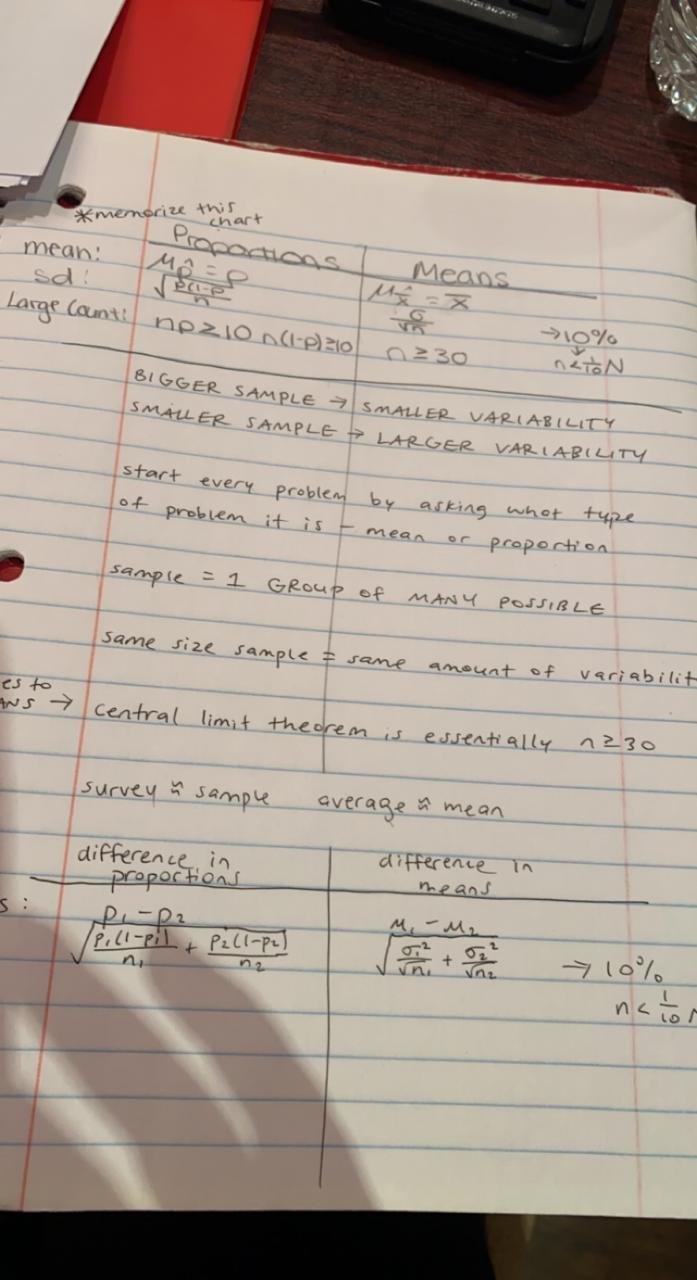 *memorize this
chart
Proportions Means
mean: μp̂ = p μx̂ = x̄
sd: √p(1-p)/n σ/√n
Large Count: np≥10 n(1-p)≥10 n≥30 →10%
↓
n<1/10N
BIGGER SAMPLE → SMALLER VARIABILITY
SMALLER SAMPLE → LARGER VARIABILITY
start every problem by asking what type
of problem it is - mean or proportion
sample = 1 GROUP OF MANY POSSIBLE
same size sample = same amount of variabilit
es to
ANS → central limit theorem is essentially n≥30
survey ≈ sample average ≈ mean
difference in difference in
proportions means
s: p₁-p₂ μ₁-μ₂
√p₁(1-p₁)/n₁ + p₂(1-p₂)/n₂ √σ₁²/√n₁ + σ₂²/√n₂ → 10%
n<1/10 N